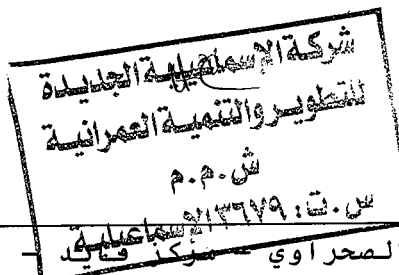 شركة الإسماعيلية الجديدة
للتطوير والتنمية العمرانية
ش.م.م
س.ت: ٣٦٧٩ الإسماعيلية
الصحراوي - مركز فايد -